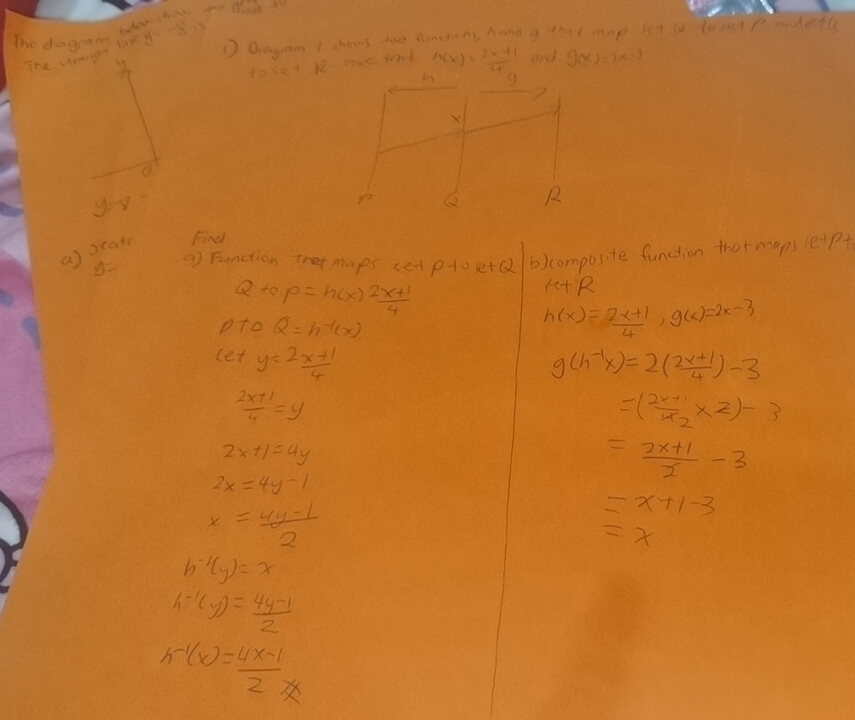 The diagram below show
The straight line y
y=8
1) Diagram 1 shows two functions, h and g that map set Q to set P and set Q
to set R. Given that h(x) = 2x+1/4 and g(x) = 2x-3
h g
x
P Q R
a)
y=
Find
a) Function that maps set P to set Q
Q to P = h(x) 2x+1/4
P to Q = h⁻¹(x)
Let y = 2x+1/4
2x+1/4 = y
2x+1=4y
2x = 4y-1
x = 4y-1/2
h⁻¹(y) = x
h⁻¹(y) = 4y-1/2
h⁻¹(x) = 4x-1/2
b) composite function that maps set P to
set R
h(x) = 2x+1/4 , g(x)=2x-3
g(h⁻¹x) = 2(2x+1/4) - 3
= (2x+1/4 2 x 2) - 3
= 2x+1/2 - 3
= x+1-3
= x